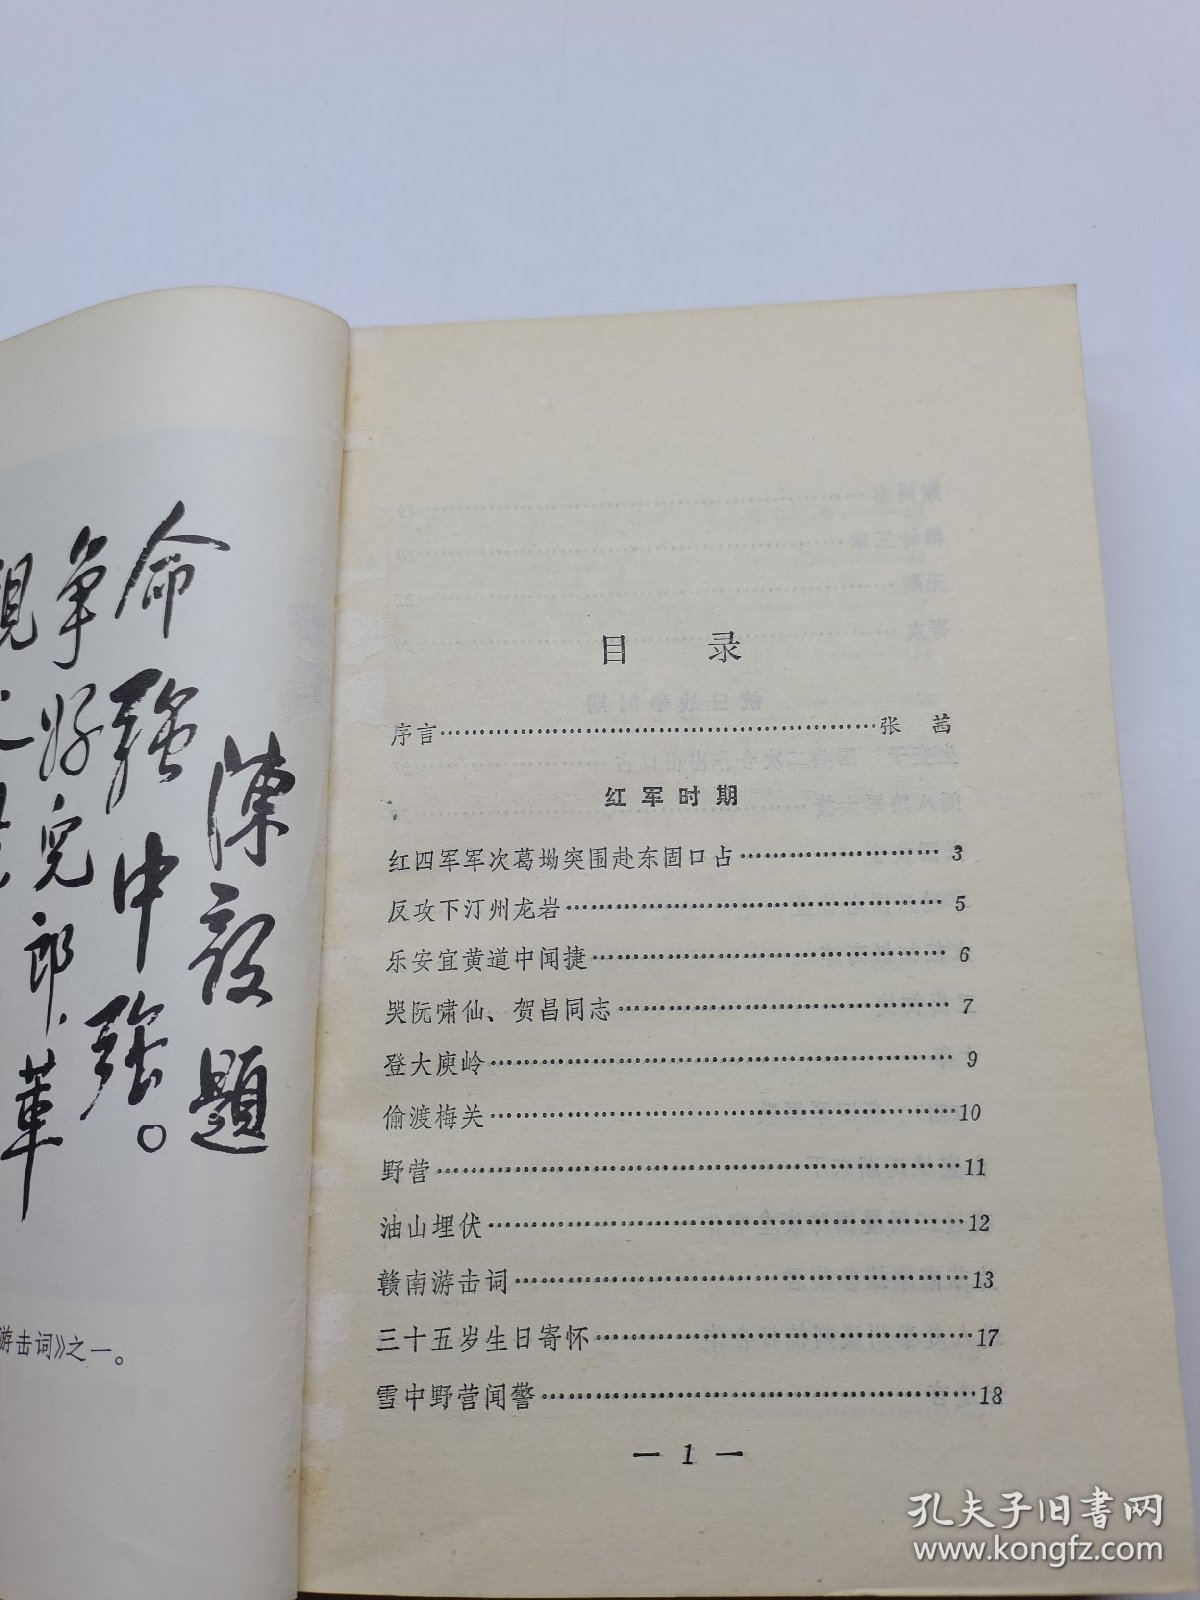 陈毅題
命強中強。
争好兒郎、革
游击词》之一。
目录
序言……张茜
红军时期
红四军军次葛坳突围赴东固口占……3
反攻下汀州龙岩……5
乐安宜黄道中闻捷……6
哭阮啸仙、贺昌同志……7
登大庾岭……9
偷渡梅关……10
野营……11
油山埋伏……12
赣南游击词……13
三十五岁生日寄怀……17
雪中野营闻警……18
— 1 —
孔夫子旧书网
www.kongfz.com